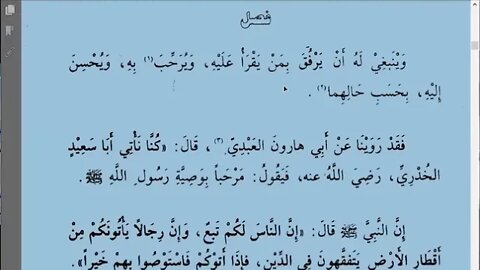 فصل
وَيَنْبَغِيْ لَهُ أَنْ يَرْفُقَ بِمَنْ يَقْرَأُ عَلَيْهِ، وَيُرَحِّبَ (١) بِهِ، وَيُحْسِنَ
إِلَيْهِ، بِحَسَبِ حَالِهِما (٢) .
فَقَدْ رَوَيْنَا عَنْ أَبي هارونَ العَبْدِيّ (٣)، قَالَ: «كُنَّا نَأْتِي أَبَا سَعِيْدٍ
الخُدْرِيَّ، رَضِيَ اللَّهُ عنه، فَيَقُولُ: مَرْحَباً بِوَصِيَّةِ رَسُولِ اللَّهِ ﷺ.
إِنَّ النَّبِيَّ ﷺ قَالَ: «إِنَّ النَّاسَ لَكُمْ تَبَعٌ، وَإِنَّ رِجَالاً يَأْتُونَكُمْ مِنْ
أَقْطَارِ الأَرْضِ يَتَفَقَّهُونَ فِي الدِّيْنِ، فَإِذَا أَتَوْكُمْ فَاسْتَوْصُوا بِهِمْ خَيْراً».